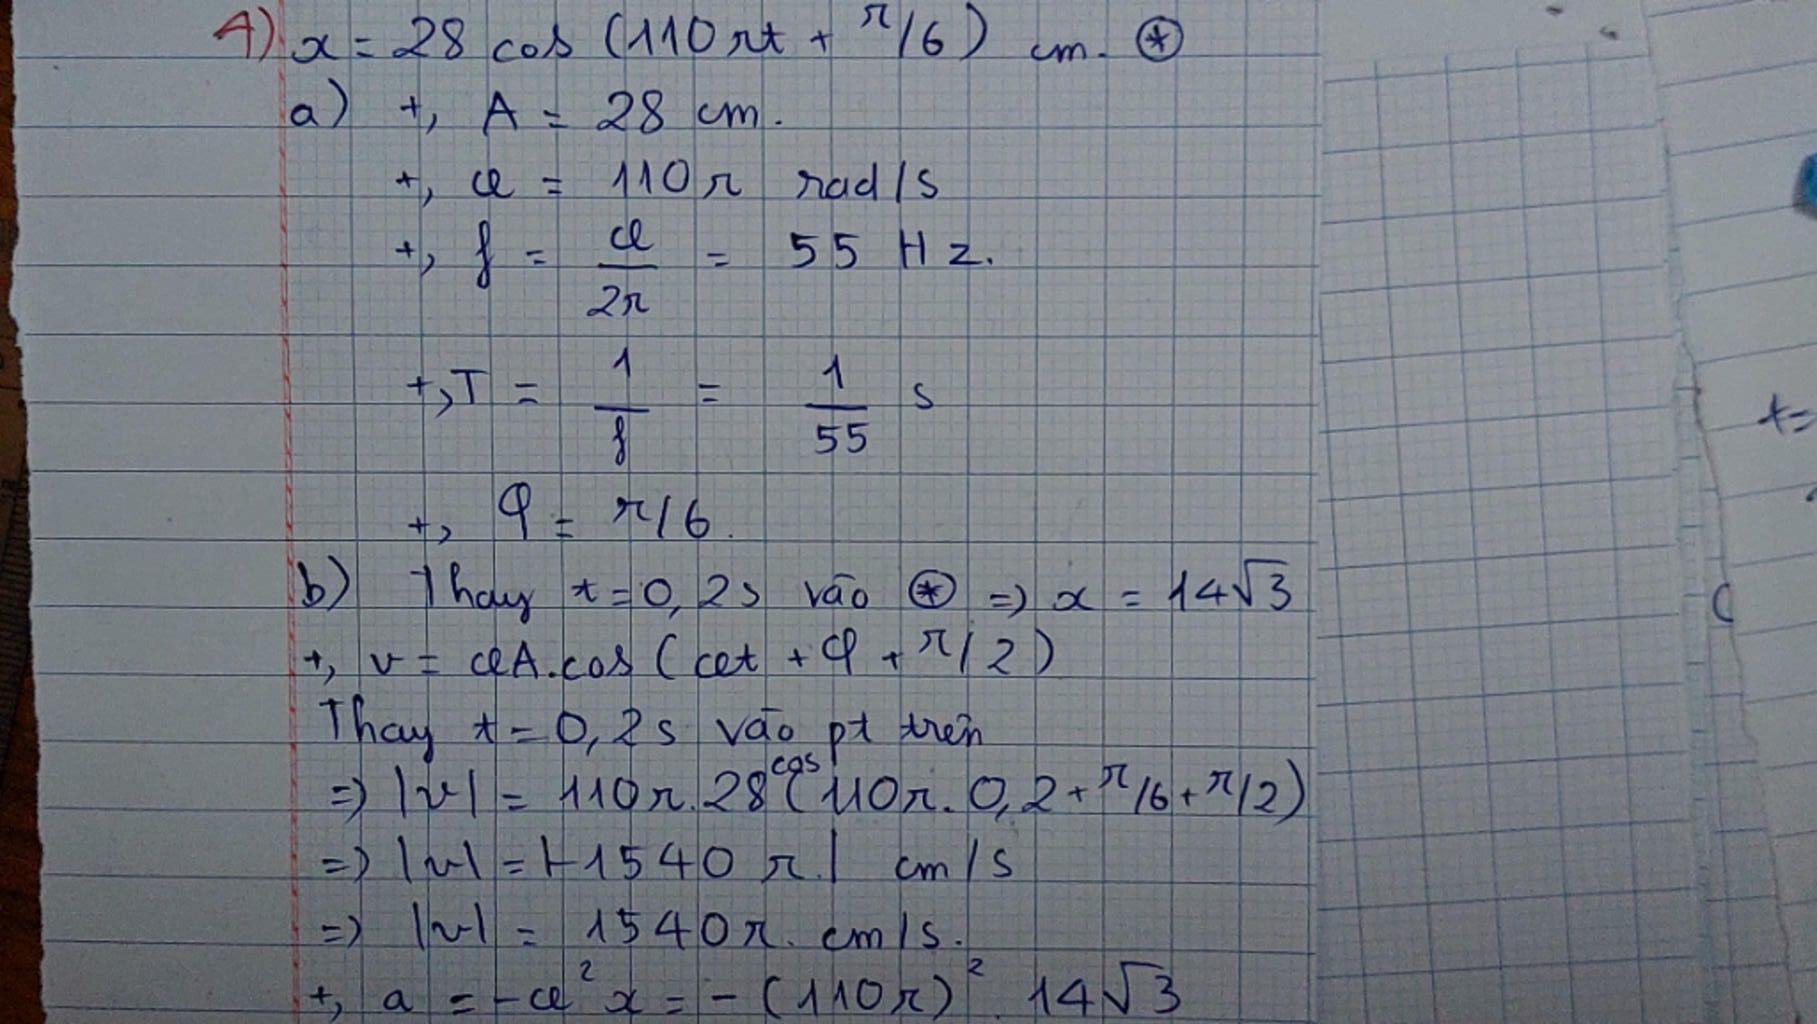 4) x = 28 cos (110πt + π/6) cm. ⊛
a) +, A = 28 cm.
+, ω = 110π rad/s
+, f = ω/2π = 55 Hz.
+, T = 1/f = 1/55 s
+, φ = π/6.
b) Thay t=0,2s vào ⊛ => x = 14√3
+, v = ωA.cos (ωt + φ + π/2)
Thay t=0,2s vào pt trên
=> |v| = 110π.28 cos (110π. 0,2 + π/6 + π/2)
=> |v| = |-1540π| cm/s
=> |v| = 1540π. cm/s.
+, a = -ω²x = -(110π)². 14√3
t=